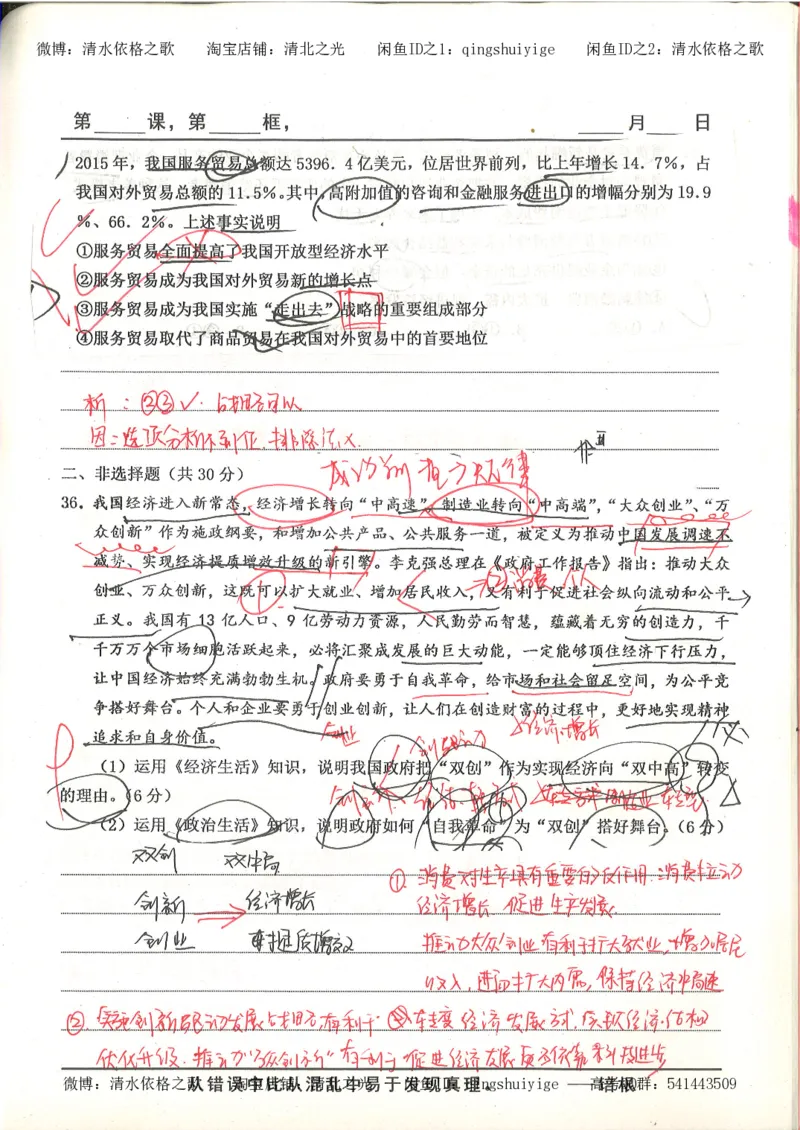 微博：清水依格之歌 淘宝店铺：清北之光 闲鱼ID之1：qingshuiyige 闲鱼ID之2：清水依格之歌
第 课，第 框， 月 日
2015 年，我国服务贸易总额达 5396．4 亿美元，位居世界前列，比上年增长 14．7％，占
我国对外贸易总额的 11.5％。其中，高附加值的咨询和金融服务进出口的增幅分别为 19.9
％、66．2％。上述事实说明
①服务贸易全面提高了我国开放型经济水平
②服务贸易成为我国对外贸易新的增长点
③服务贸易成为我国实施“走出去”战略的重要组成部分
④服务贸易取代了商品贸易在我国对外贸易中的首要地位
析：②③✓
因：选项分析不到位，排除法
二、非选择题（共 30 分）
36．我国经济进入新常态，经济增长转向“中高速”，制造业转向“中高端”，“大众创业”、“万
众创新”作为施政纲要，和增加公共产品、公共服务一道，被定义为推动中国发展调速不
减势、实现经济提质增效升级的新引擎。李克强总理在《政府工作报告》指出：推动大众
创业、万众创新，这既可以扩大就业、增加居民收入，又有利于促进社会纵向流动和公平
正义。我国有 13 亿人口、9 亿劳动力资源，人民勤劳而智慧，蕴藏着无穷的创造力，千
千万万个市场细胞活跃起来，必将汇聚成发展的巨大动能，一定能够顶住经济下行压力，
让中国经济始终充满勃勃生机。政府要勇于自我革命，给市场和社会留足空间，为公平竞
争搭好舞台。个人和企业要勇于创业创新，让人们在创造财富的过程中，更好地实现精神
追求和自身价值。
（1）运用《经济生活》知识，说明我国政府把“双创”作为实现经济向“双中高”转变
的理由。（6 分）
（2）运用《政治生活》知识，说明政府如何“自我革命”为“双创”搭好舞台。（6 分）
双创 双中高
创新 经济增长
创业
①消费对生产具有重要的反作用．消费拉动
经济增长，促进生产发展．
推动大众创业有利于扩大就业，增加居民
收入，进而扩大内需，保持经济中高速
②实施创新驱动发展战略有利于转变经济发展方式，实现经济结构
优化升级．推动“万众创新”有利于促进经济发展更多依靠科技进步
微博：清水依格之歌 淘宝店铺：清北之光 闲鱼ID：qingshuiyige 高考QQ群：541443509
从错误中比从混乱中易于发现真理。 ——培根